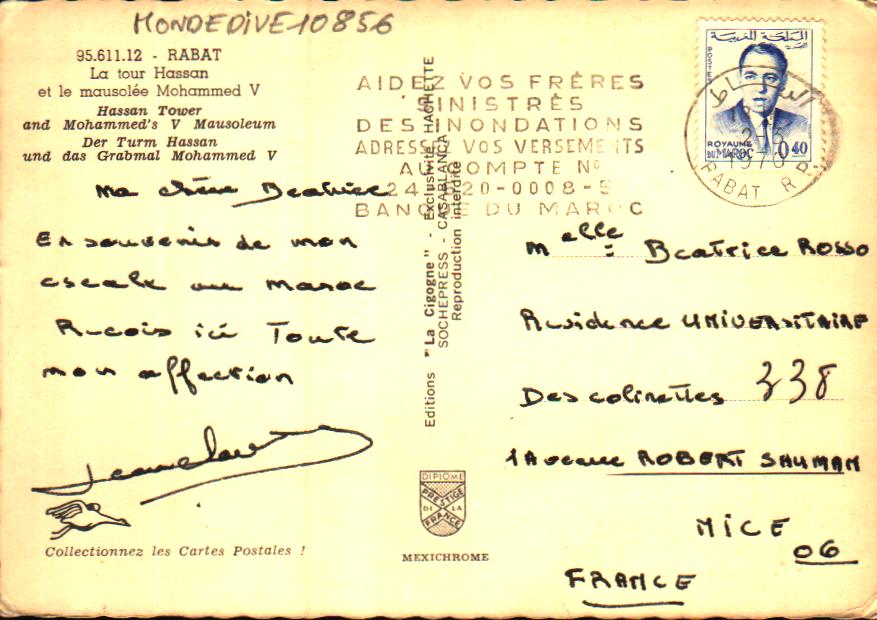 MONDEDIVE10856
95.611.12 - RABAT
La tour Hassan
et le mausolée Mohammed V
Hassan Tower
and Mohammed's V Mausoleum
Der Turm Hassan
und das Grabmal Mohammed V
AIDEZ VOS FRÈRES
SINISTRÉS
DES INONDATIONS
ADRESSEZ VOS VERSEMENTS
AU COMPTE Nº
BANQUE DU MAROC
المملكة المغربية
POSTES
ROYAUME
DU MAROC 0,40
الرباط
2-3
1970
RABAT R.P.
Ma chère Beatrice
En souvenir de mon
escale au Maroc
Recois ici Toute
mon affection
Jeanclaude
Collectionnez les Cartes Postales !
Editions "La Cigogne" - Exclusivité HACHETTE
SOCHEPRESS - CASABLANCA
Reproduction interdite
DIPLOME
PRESTIGE
DE LA
FRANCE
MEXICHROME
Melle : Beatrice ROSSO
Residence UNIVERSITAIRE
Des colinettes 338
1 Avenue ROBERT SHUMAN
NICE
06
FRANCE